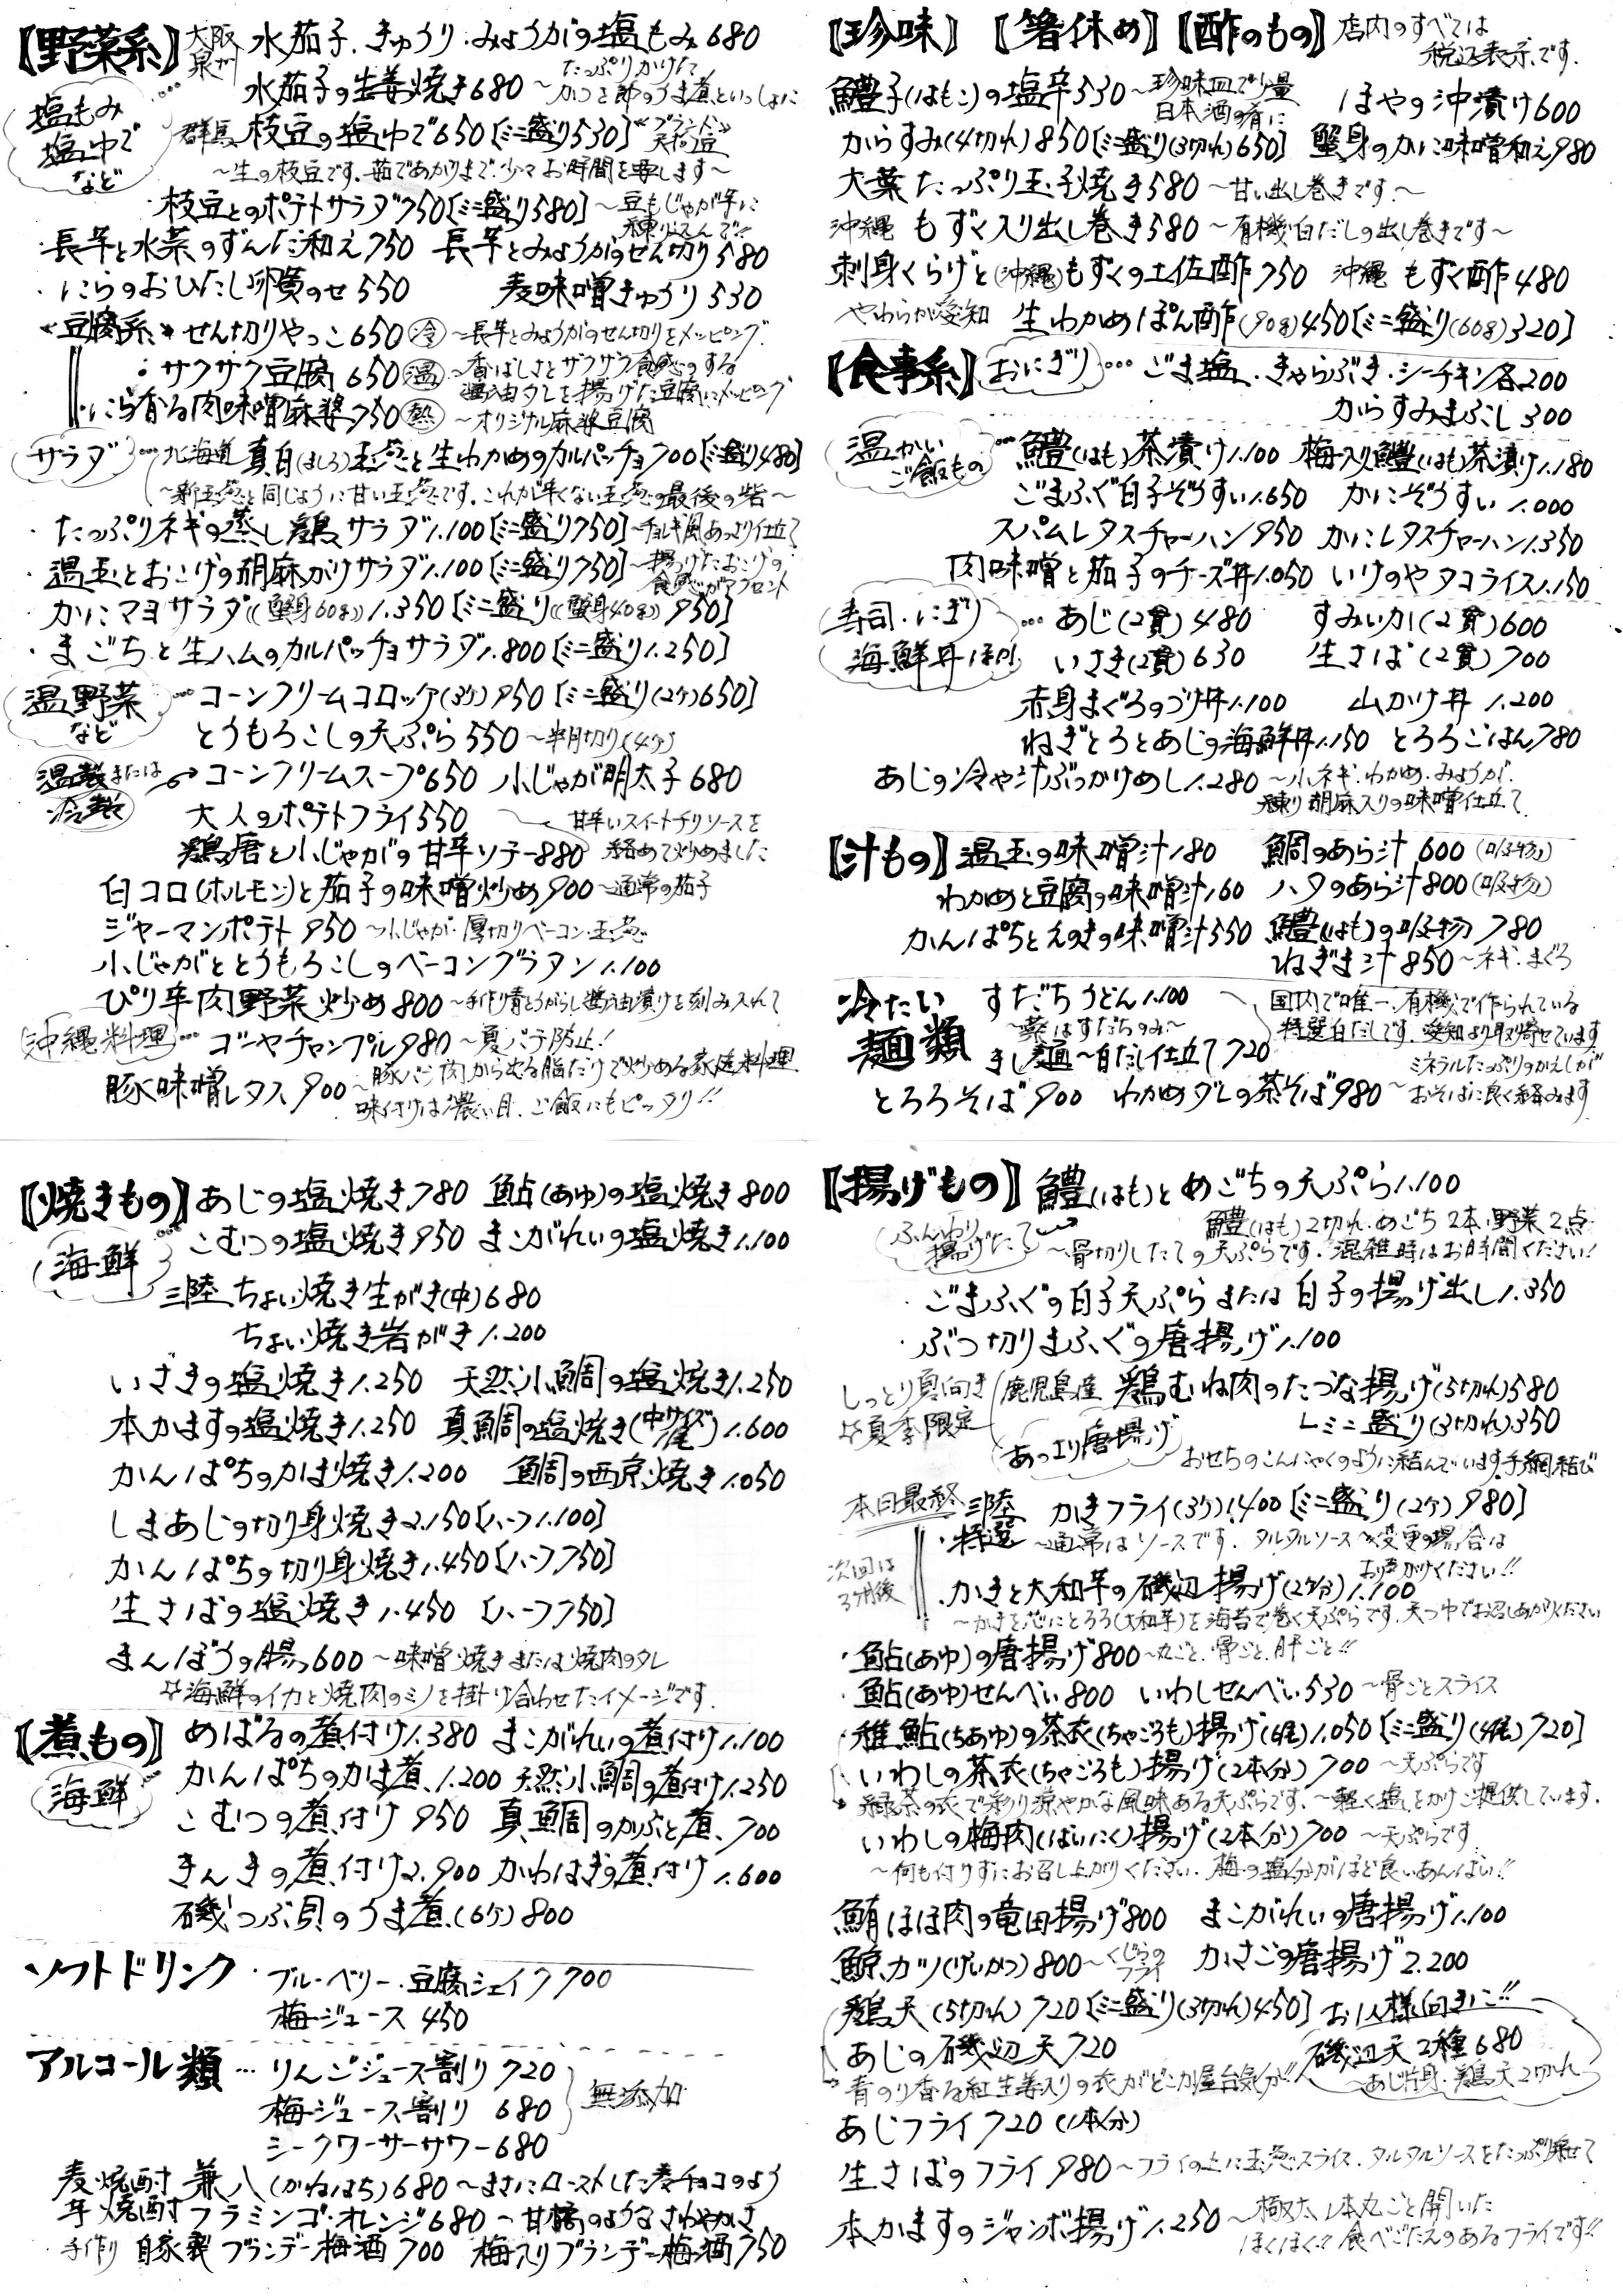 【野菜系】
大阪 泉州 水茄子、きゅうり、みょうがの塩もみ680
水茄子の生姜焼き680 ~たっぷりかけて かつお節のうま煮といっしょに
塩もみ 塩ゆで など
群馬 枝豆の塩ゆで650[ミニ盛り530] "ブランド" 天狗豆
~生の枝豆です。茹であがりまで少々お時間を要します~
枝豆とのポテトサラダ750[ミニ盛り580] ~豆もじゃが芋に練り込んで
・長芋と水菜のずんだ和え750 長芋とみょうがのせん切り580
・にらのおひたし卵黄のせ550 麦味噌きゅうり530
"豆腐系" せん切りやっこ650 冷 ~長芋とみょうがのせん切りをトッピング
・サクサク豆腐650 温 ~香ばしさとザクザク食感のする 醤油タレを揚げた豆腐にトッピング
・にら香る肉味噌麻婆750 熱 ~オリジナル麻婆豆腐
サラダ … 北海道 真白(ましろ)玉葱と生わかめのカルパッチョ700[ミニ盛り480]
~新玉葱と同じように甘い玉葱です。これが辛くない玉葱の最後の砦~
・たっぷりネギの蒸し鶏サラダ1.100[ミニ盛り750] ~チョレギ風あっさり仕立て
・温玉とおこげの胡麻がけサラダ1.100[ミニ盛り750] ~揚げたおこげの食感がアクセント
・かにマヨサラダ((蟹身60g))1.350[ミニ盛り((蟹身40g))950]
・まごちと生ハムのカルパッチョサラダ1.800[ミニ盛り1.250]
温野菜 など … コーンクリームコロッケ(3ケ)950[ミニ盛り(2ケ)650]
とうもろこしの天ぷら550 ~半月切り(4ケ)
温製または冷製 → コーンクリームスープ650 小じゃが明太子680
大人のポテトフライ550
鶏唐と小じゃがの甘辛ソテー880 甘辛いスイートチリソースを絡めて炒めました
白コロ(ホルモン)と茄子の味噌炒め900 ~通常の茄子
ジャーマンポテト950 ~小じゃが・厚切りベーコン・玉葱
小じゃがととうもろこしのベーコングラタン1.100
ぴり辛肉野菜炒め800 ~手作り青とうがらし醤油漬けを刻み入れて
沖縄料理 … ゴーヤチャンプル980 ~夏バテ防止!
豚味噌レタス900 ~豚バラ肉から出る脂だけで炒める家庭料理 味付けは濃い目。ご飯にもピッタリ!!
【珍味】【箸休め】【酢のもの】 店内のすべては税込表示です。
鱧子(はもこ)の塩辛530 ~珍味皿で少量 日本酒の肴に ほやの沖漬け600
からすみ(4切れ)850[ミニ盛り(3切れ)650] 蟹身のかに味噌和え980
大葉たっぷり玉子焼き580 ~甘い出し巻きです~
沖縄 もずく入り出し巻き580 ~有機白だしの出し巻きです~
刺身くらげと(沖縄)もずくの土佐酢750 沖縄 もずく酢480
やわらか愛知 生わかめぽん酢(90g)450[ミニ盛り(60g)320]
【食事系】 おにぎり … ごま塩・きゃらぶき・シーチキン各200
からすみまぶし300
温かいご飯もの … 鱧(はも)茶漬け1.100 梅入り鱧(はも)茶漬け1.180
ごまふぐ白子ぞうすい1.650 かにぞうすい1.000
スパムレタスチャーハン950 かにレタスチャーハン1.350
肉味噌と茄子のチーズ丼1.050 いけのやタコライス1.150
寿司・にぎり 海鮮丼ほか … あじ(2貫)480 すみいか(2貫)600
いさき(2貫)630 生さば(2貫)700
赤身まぐろのづけ丼1.100 山かけ丼1.200
ねぎとろとあじの海鮮丼1.150 とろろごはん780
あじの冷や汁ぶっかけめし1.280 ~小ネギ・わかめ・みょうが・練り胡麻入りの味噌仕立て
【汁もの】 温玉の味噌汁180 鯛のあら汁600(吸物)
わかめと豆腐の味噌汁160 ハタのあら汁800(吸物)
かんぱちとえのきの味噌汁550 鱧(はも)の吸物780
ねぎま汁850 ~ネギ・まぐろ
冷たい麺類 すだちうどん1.100 ~薬はすだちのみ~
きし麺~白だし仕立て720
国内で唯一、有機で作られている特選白だしです。愛知より取寄せています
とろろそば900 わかめダレの茶そば980 ~ミネラルたっぷりのかえしがおそばに良く絡みます
【焼きもの】 あじの塩焼き780 鮎(あゆ)の塩焼き800
海鮮 … こむつの塩焼き950 まこがれいの塩焼き1.100
三陸 ちょい焼き生がき(中)680
ちょい焼き岩がき1.200
いさきの塩焼き1.250 天然小鯛の塩焼き1.250
本かますの塩焼き1.250 真鯛の塩焼き(中サイズ1尾)1.600
かんぱちのかま焼き1.200 鯛の西京焼き1.050
しまあじの切り身焼き2.150[ハーフ1.100]
かんぱちの切り身焼き1.450[ハーフ750]
生さばの塩焼き1.450[ハーフ750]
まんぼうの腸600 ~味噌焼きまたは焼肉のタレ
海鮮のイカと焼肉のミノを掛け合わせたイメージです。
【煮もの】 めばるの煮付け1.380 まこがれいの煮付け1.100
海鮮 … かんぱちのかま煮1.200 天然小鯛の煮付け1.250
こむつの煮付け950 真鯛のかぶと煮700
きんきの煮付け2.900 かわはぎの煮付け1.600
磯つぶ貝のうま煮(6ケ)800
ソフトドリンク ・ブルーベリー・豆腐シェイク700
梅ジュース450
アルコール類 … りんごジュース割り720
梅ジュース割り680 無添加
シークワーサーサワー680
麦焼酎 兼八(かねはち)680 ~まさにローストした麦チョコのよう
芋焼酎 フラミンゴ・オレンジ680 ~甘橘のようなさわやかさ
手作り 自家製ブランデー梅酒700 梅入りブランデー梅酒750
【揚げもの】 鱧(はも)とめごちの天ぷら1.100
ふんわり揚げたて 鱧(はも)2切れ・めごち2本・野菜2点
~骨切りしたての天ぷらです。混雑時はお時間ください!
・ごまふぐの白子天ぷらまたは白子の揚げ出し1.350
・ぶつ切りまふぐの唐揚げ1.100
しっとり夏向き 夏季限定 鹿児島産 鶏むね肉のたづな揚げ(5切れ)580
ミニ盛り(3切れ)350
あっさり唐揚げ おせちのこんにゃくのように結んでいます 手綱結び
本日最終 次回は3ヶ月後
三陸・特選 かきフライ(3ケ)1.400[ミニ盛り(2ケ)980]
~通常はソースです。タルタルソースへ変更の場合はお声がけください!!
・かきと大和芋の磯辺揚げ(2ケ分)1.100
~かきを芯にとろろ(大和芋)を海苔で巻く天ぷらです。天つゆでお召しあがりください
・鮎(あゆ)の唐揚げ800 ~丸ごと、骨ごと、肝ごと!!
・鮎(あゆ)せんべい800 いわしせんべい530 ~骨ごとスライス
・稚鮎(ちあゆ)の茶衣(ちゃごろも)揚げ(6尾)1.050[ミニ盛り(4尾)720]
・いわしの茶衣(ちゃごろも)揚げ(2本分)700 ~天ぷらです
緑茶の衣で彩り涼やかな風味ある天ぷらです。~軽く塩をかけご提供しています。
いわしの梅肉(ばいにく)揚げ(2本分)700 ~天ぷらです
~何も付けずにお召し上がりください。梅の塩分がほど良いあんばい!!
鮪ほほ肉の竜田揚げ800 まこがれいの唐揚げ1.100
鯨カツ(げいかつ)800 ~くじらのフライ かさごの唐揚げ2.200
鶏天(5切れ)720[ミニ盛り(3切れ)450] お1人様向きに!!
あじの磯辺天720 磯辺天2種680
青のり香る紅生姜入りの衣がどこか屋台気分!! ~あじ片身・鶏天2切れ
あじフライ720(1本分)
生さばのフライ980 ~フライの上に玉葱スライス、タルタルソースをたっぷり乗せて
本かますのジャンボ揚げ1.250 ~極太1本丸ごと開いた ほくほくで食べごたえのあるフライです!!